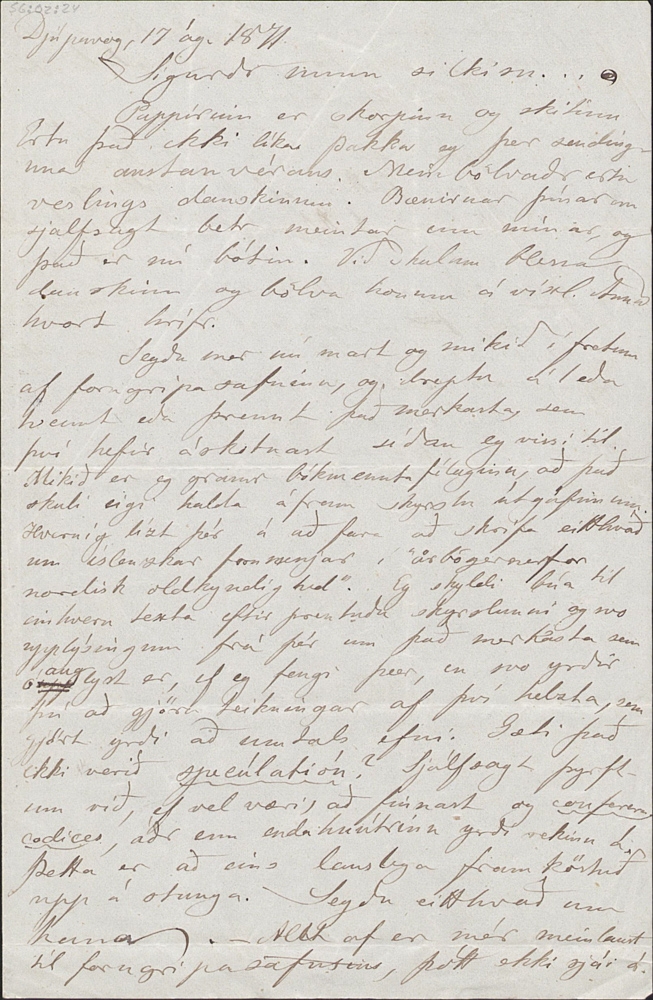 Djúpavog, 17 ág. 1871.
Sigurðr minn silkisu...
Pappírinn er skorpinn og skitinn
Ertu það ekki líka þakka eg þer sending-
una austanvérans. Mein bölvaðr ertu
veslings danskinum. Bænirnar þínar eru
sjálfsagt betr meintar enn mínar, og
það er nú bótin. Við skulum blessa
danskinn og bölva honum á víxl. Annað
hvort hrífr.
Segðu mer nú mart og mikið í fretum
af forngripasafninu, og dreptu á 1 eða
tvennt eða þrennt það merkasta, sem
því hefir áskotnast síðan eg vissi til.
Mikið er eg gramr bókmenntafélaginu, að það
skuli eigi halda áfram skyrslu útgáfunum.
Hvernig lízt þér á að fara að skrifa eitthvað
um íslenzkar fornmenjar í "årböger for
nordisk oldkyndighed". Eg skyldi búa til
einhvern texta eptir prentuðu skyrslunni og svo
upplýsingum frá þér um það merkasta sem
auglyst er, ef eg fengi þær, en svo yrðir
þú að gjöra teikningar af því helzta, sem
gjört yrði að umtals efni. Gæti það
ekki verið speculatión? Sjálfsagt þyrft-
um við, ef vel væri, að finnast og conferera
codices, áðr enn endahnútrinn yrði rekinn á.
Þetta er að eins lauslega framköstuð
upp á stunga. Segðu eitthvað um
hana. — Allt af er mér meinlaust
til forngripasafnsins, þótt ekki sjái á.